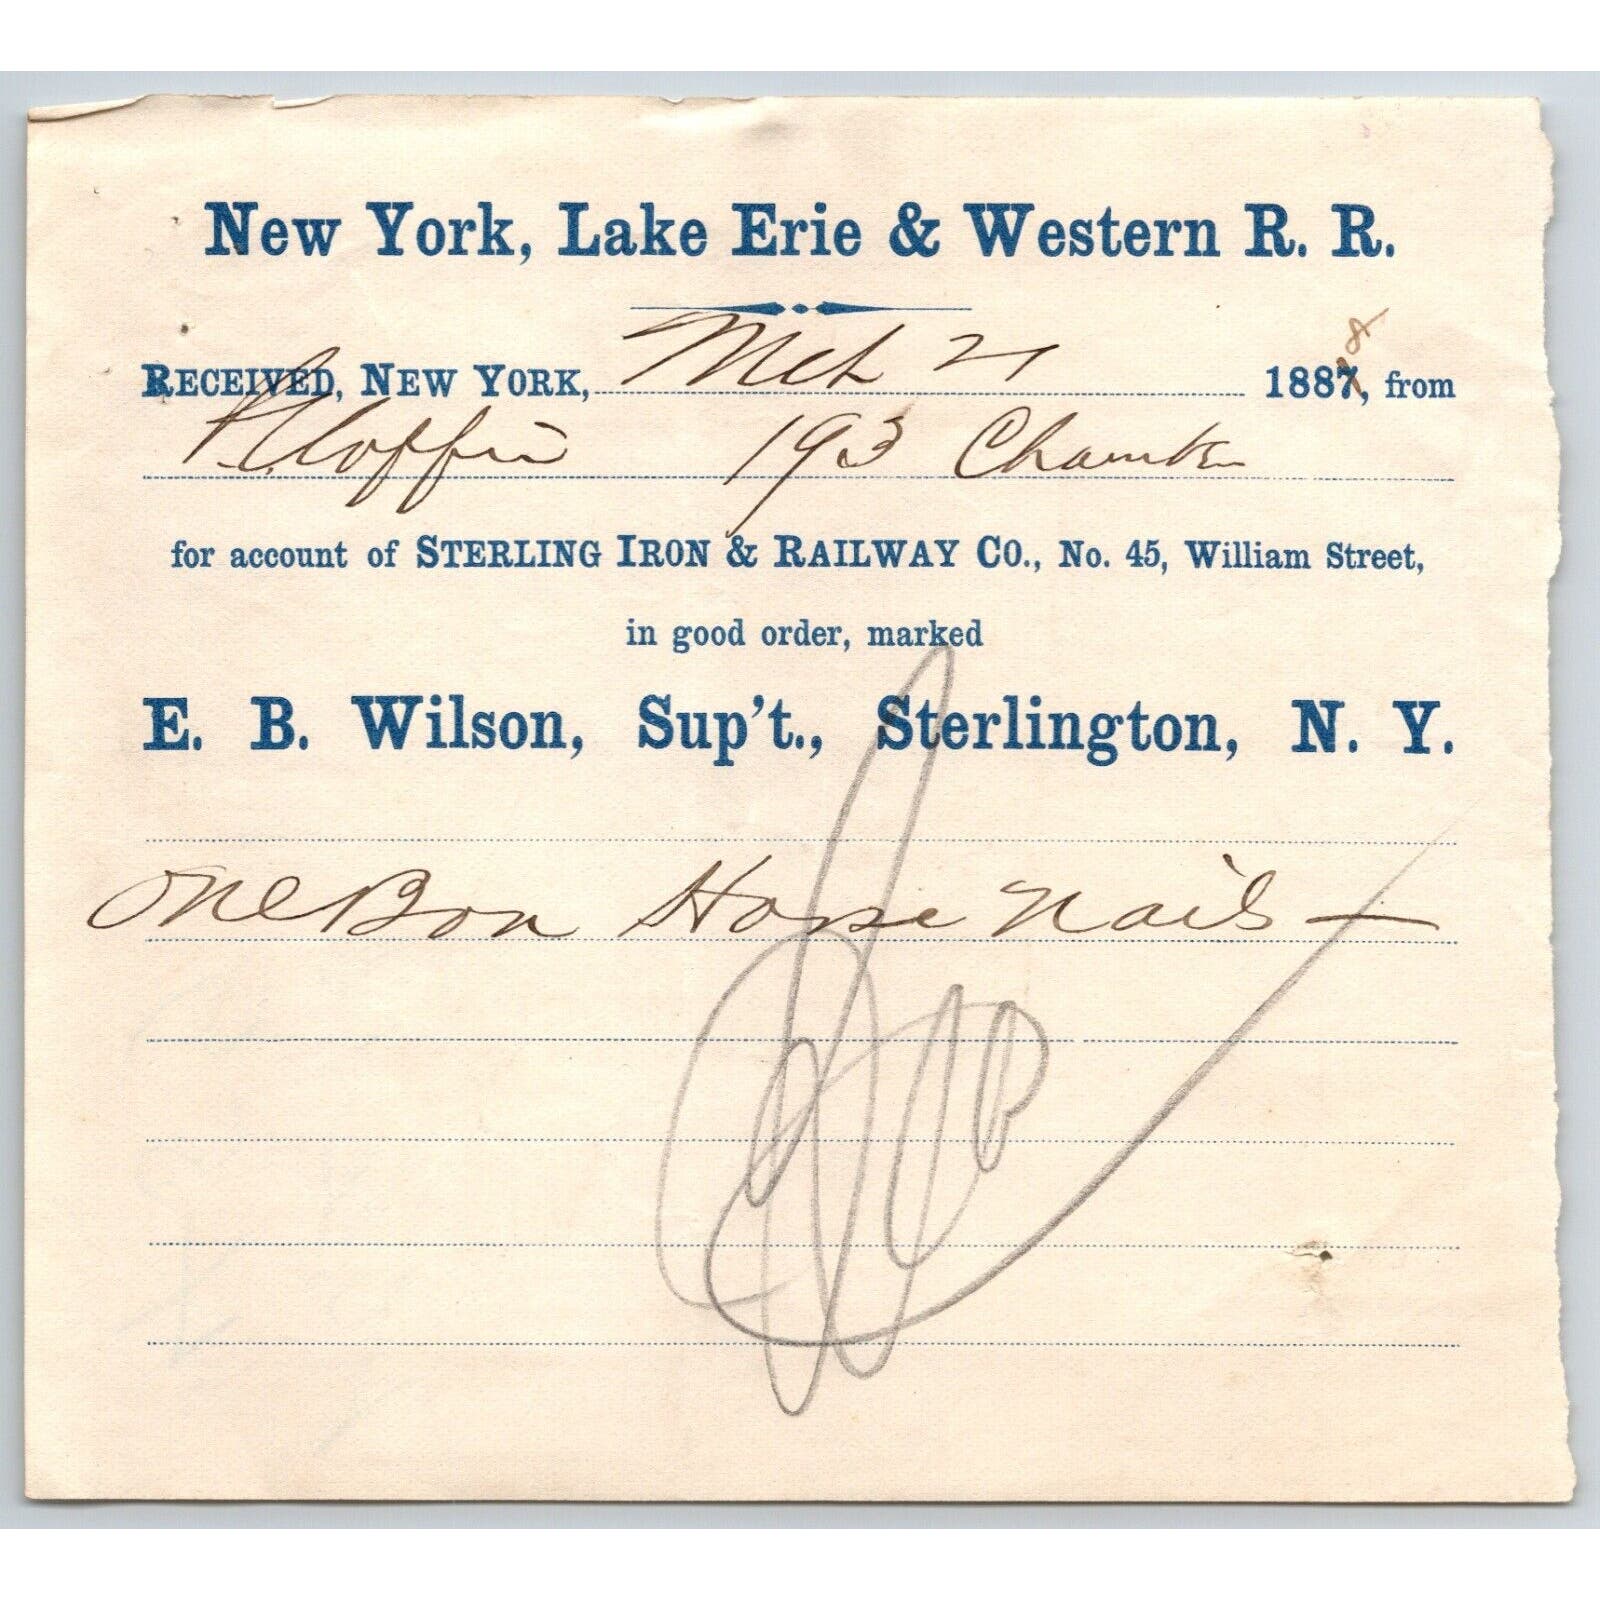 New York, Lake Erie & Western R. R.
RECEIVED, NEW YORK, Mch 21 1887, 8 from
Coffin 193 Chambers
for account of STERLING IRON & RAILWAY CO., No. 45, William Street,
in good order, marked
E. B. Wilson, Sup't., Sterlington, N. Y.
One Box Horse Nails —